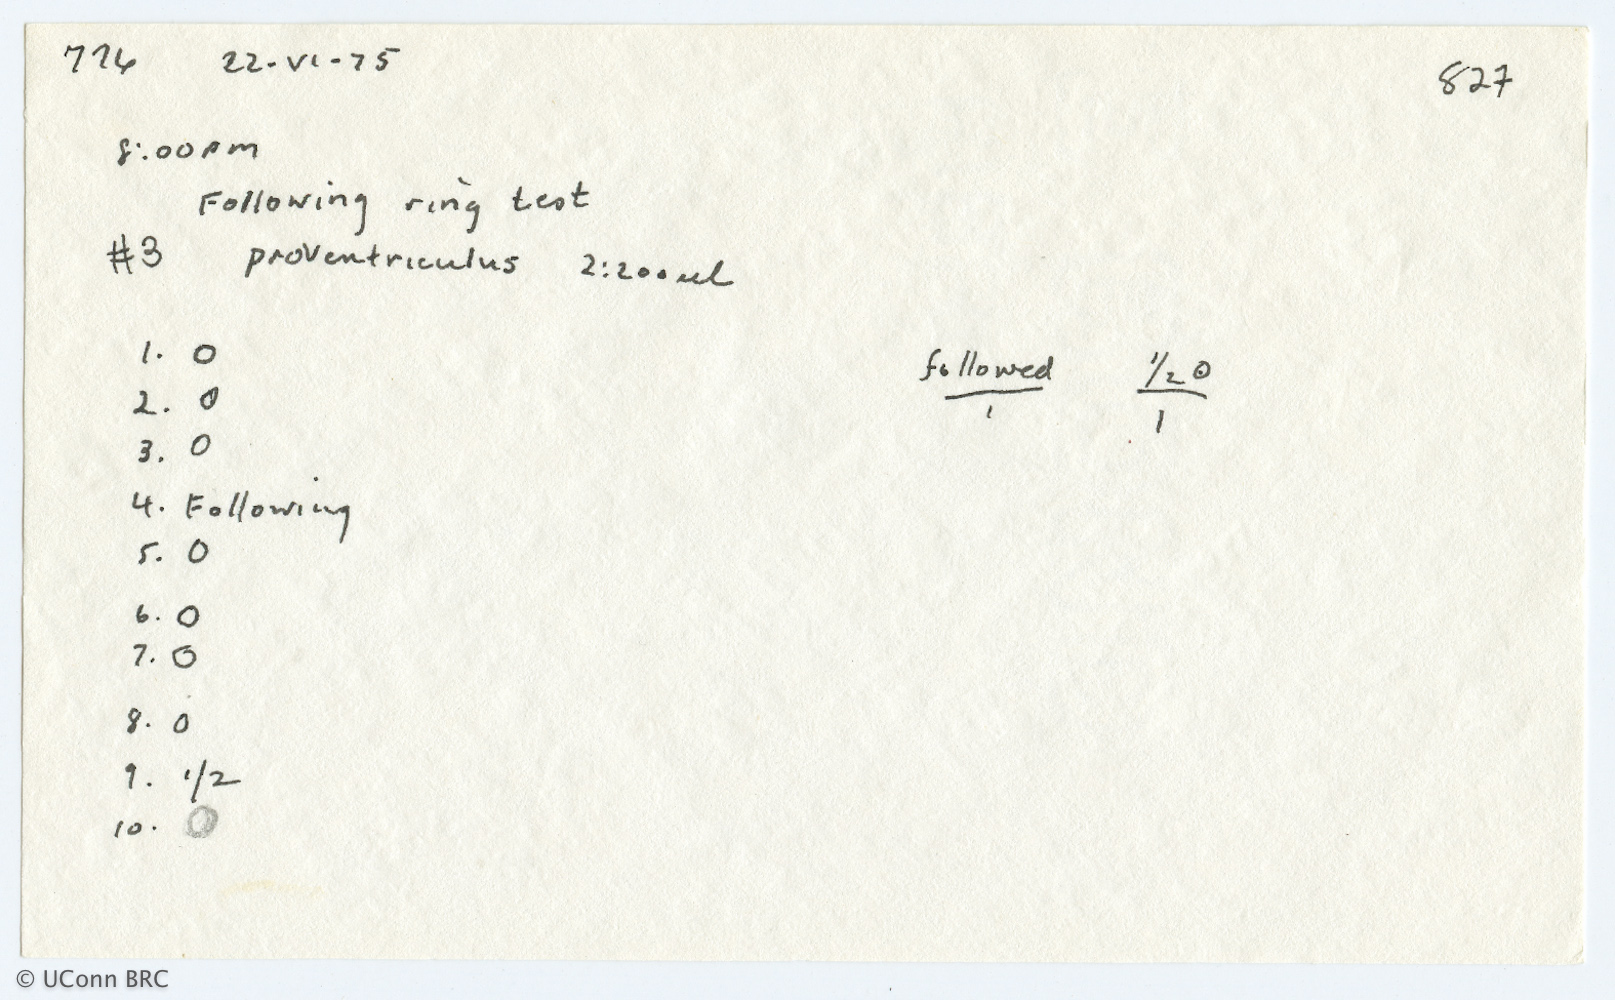 776 22-VI-75 827
8:00pm
Following ring test
#3 proventriculus 2:200ul
1. 0
2. 0
3. 0
4. Following
5. 0
6. 0
7. 0
8. 0
9. 1/2
10. 0
followed 1/2 0
1 1
© UConn BRC